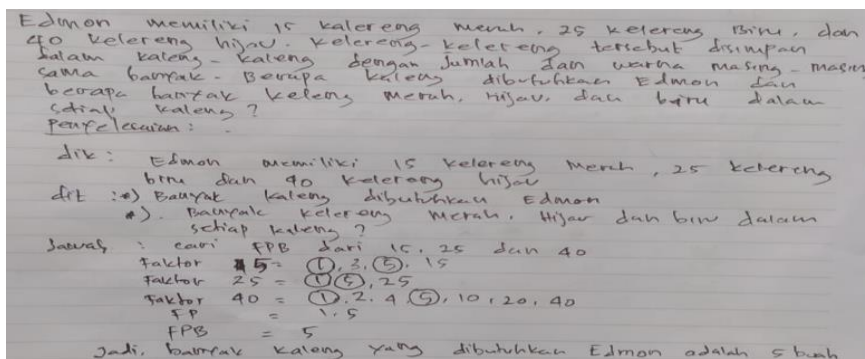 Edmon memiliki 15 kalereng merah, 25 kelereng Biru, dan
40 kelereng hijau. kelereng-kelereng tersebut disimpan
dalam kaleng-kaleng dengan Jumlah dan warna masing-masin
sama banyak. Berapa kaleng dibutuhkan Edmon dan
berapa banyak keleng merah, Hijau, dan biru dalam
setiap kaleng?
Penyelesaian:
dik : Edmon memiliki 15 kelereng Merah, 25 kelereng
biru dan 40 kelereng hijau
dit : *) Banyak kaleng dibutuhkan Edmon
*). Banyak kelereng merah, Hijau dan biru dalam
setiap kaleng?
Jawab : cari FPB dari 15, 25 dan 40
Faktor 15 = 1, 3, 5, 15
Faktor 25 = 1 5, 25
Faktor 40 = 1, 2, 4, 5, 10, 20, 40
FP = 1, 5
FPB = 5
Jadi, banyak kaleng yang dibutuhkan Edmon adalah 5 buah